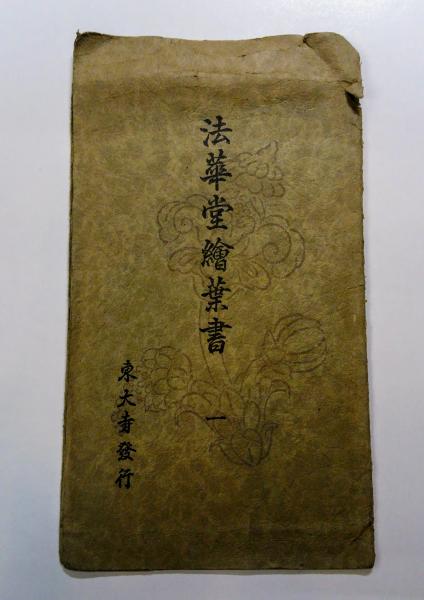 法華堂繪葉書
一
東大寺發行